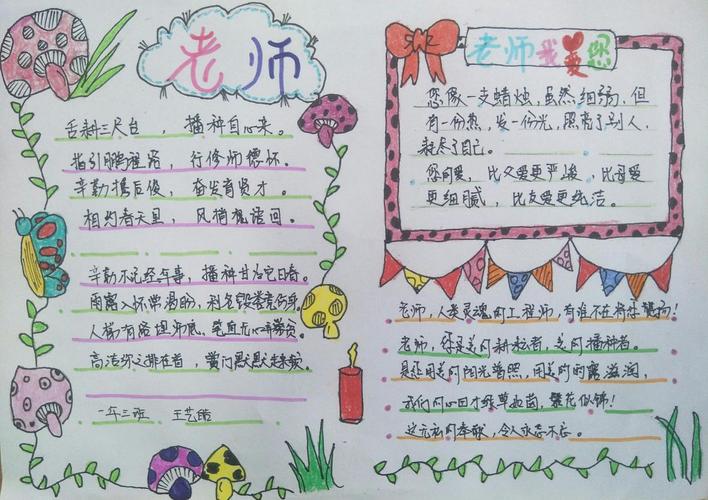 老师
舌耕三尺台，播种自心来。
指引鹏程路，行修师德怀。
辛勤携后俊，奋发育贤才。
相约春天里，风俏桃语回。
辛勤不已经年事，播种甘为它日奇。
雨露入怀
人梯有
高洁
默默
一年三班
老师我爱您
您像一支蜡烛，虽然细弱，但
有一份热，发一份光，照亮了别人，
耗尽了自己。
您的爱，比父爱更严峻，比母爱
更细腻，比友爱更纯洁。
老师，人类灵魂的工程师，有谁不在将您赞扬！
老师，您是美的耕耘者，美的播种者。
是您用美的阳光普照，用美的雨露滋润，
我们的心田才绿草如茵，繁花似锦！
这无私的奉献，令人永志不忘。